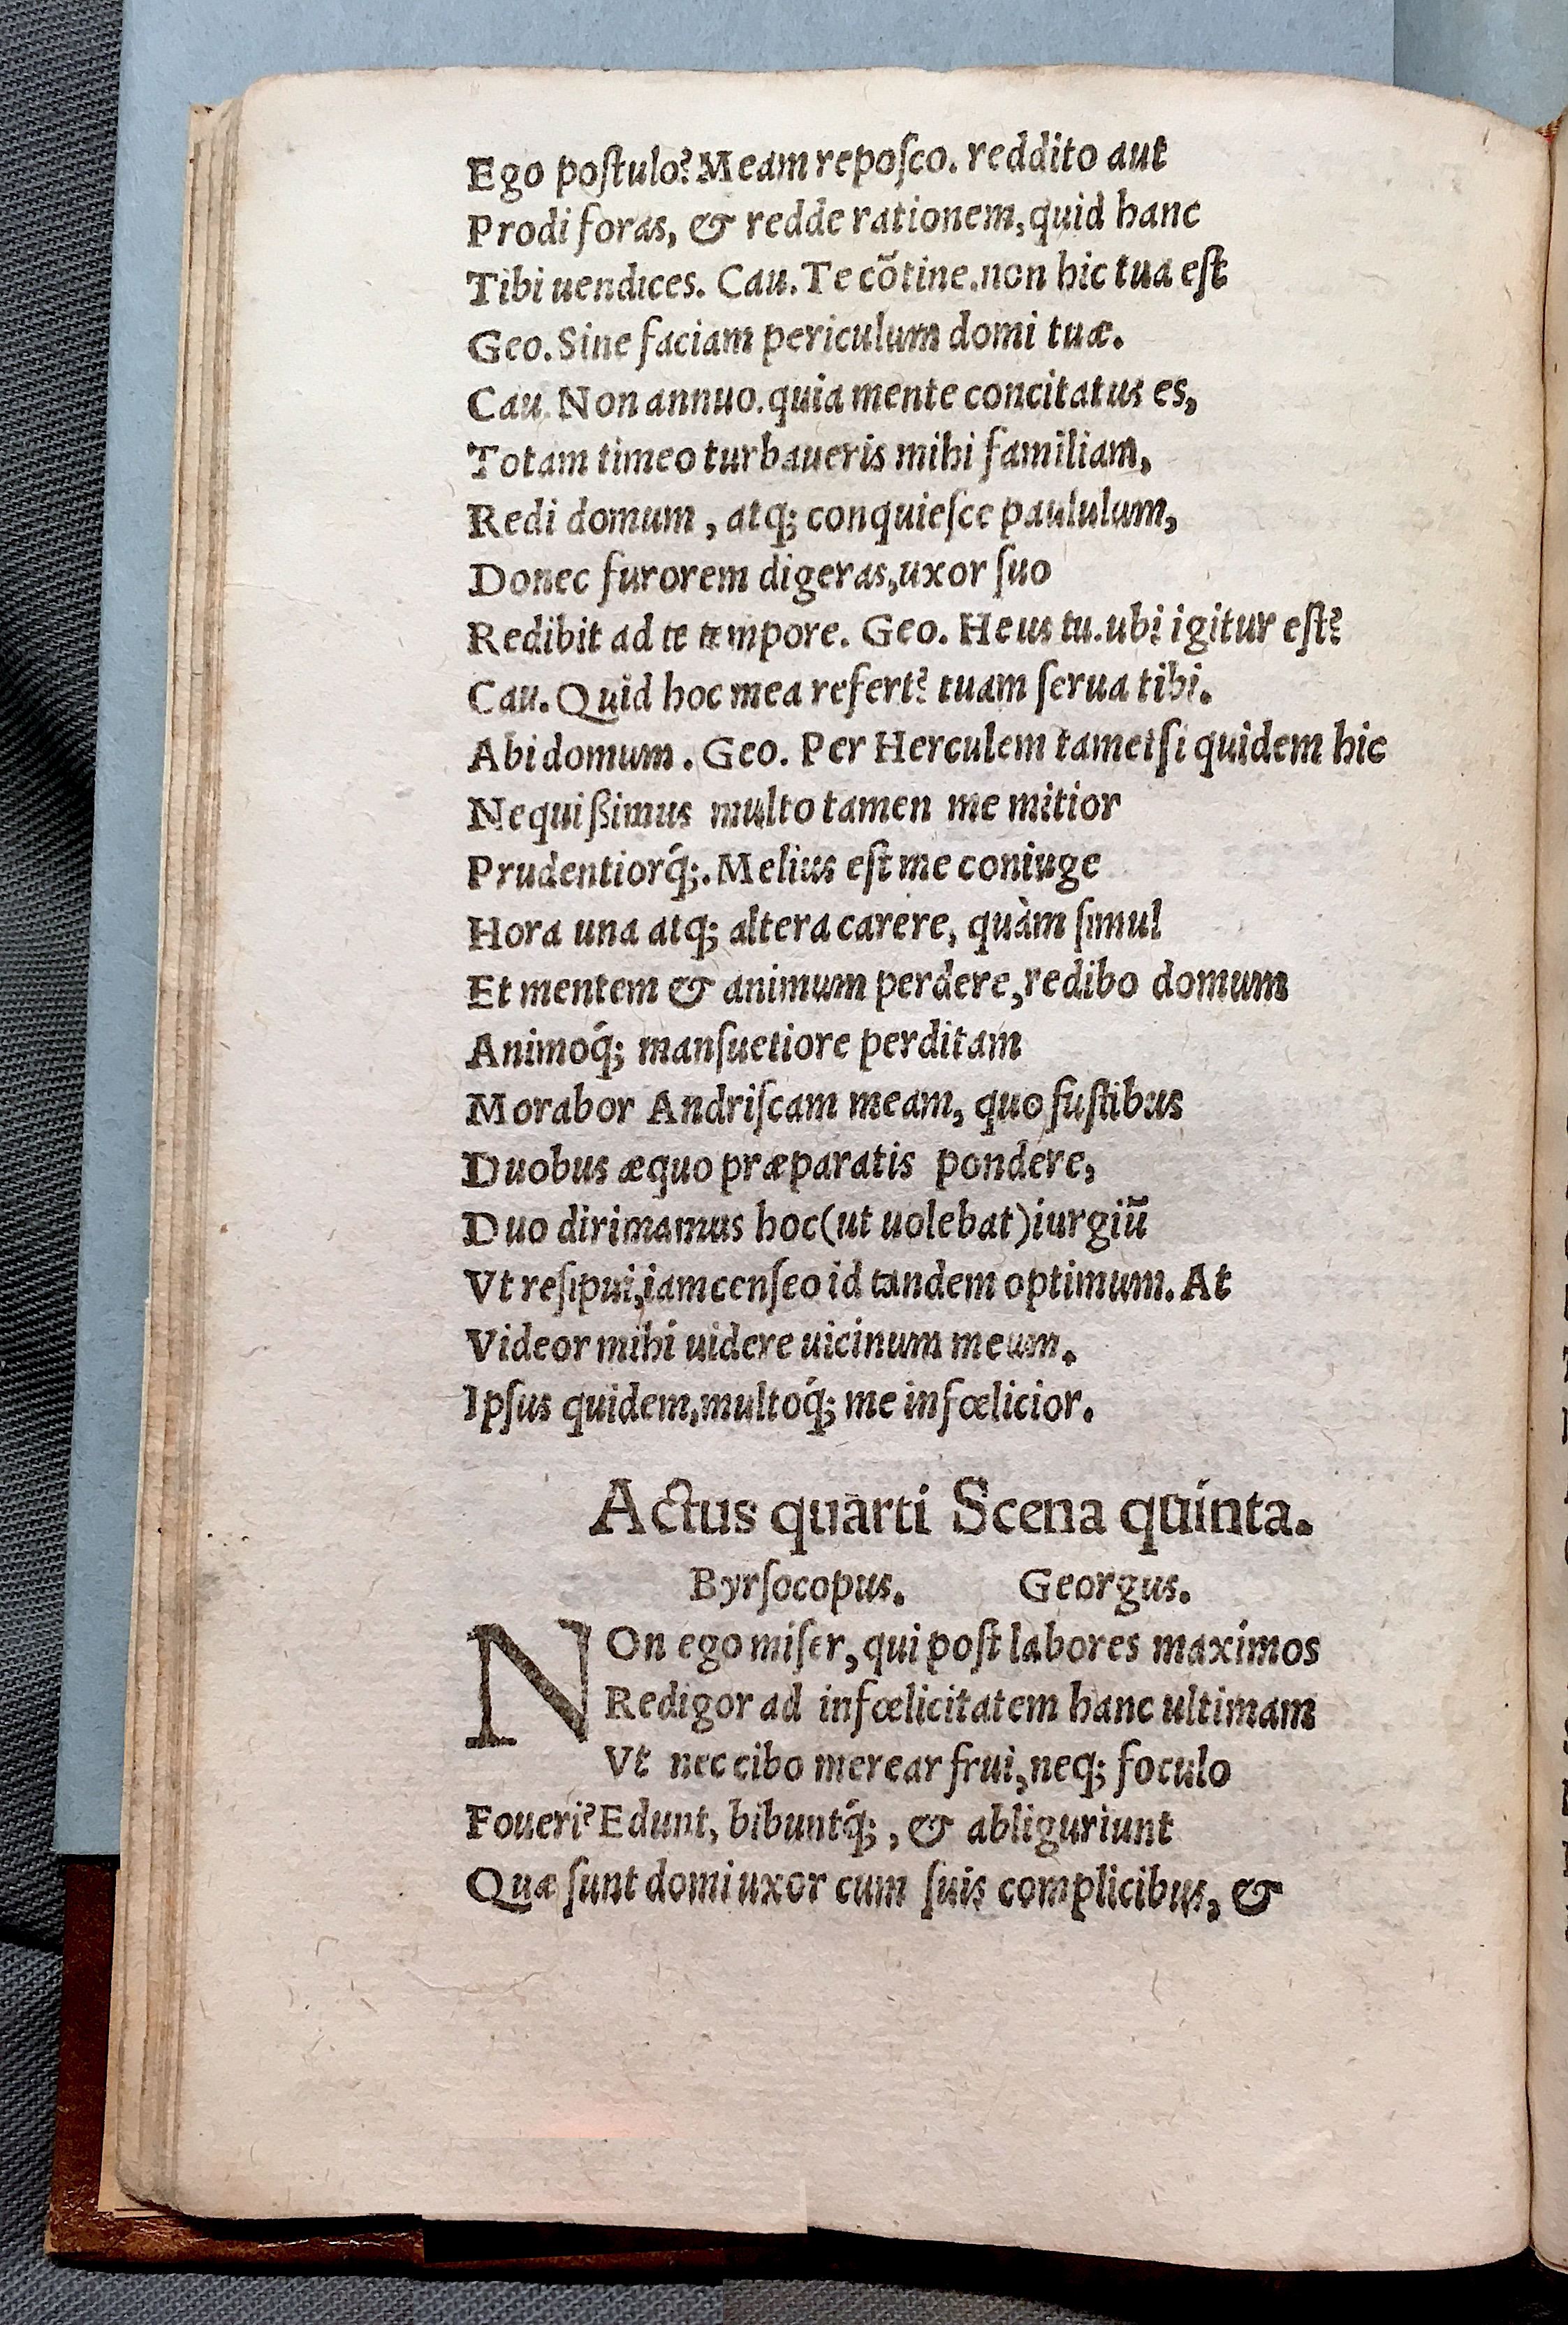 Ego poſtulo? Meam repoſco. reddito aut
Prodi foras, & redde rationem, quid hanc
Tibi uendices. Cau. Te cõtine. non hic tua eſt
Geo. Sine faciam periculum domi tuæ.
Cau. Non annuo. quia mente concitatus es,
Totam timeo turbaueris mihi familiam,
Redi domum, atq; conquieſce paululum,
Donec furorem digeras, uxor ſuo
Redibit ad te tempore. Geo. Heus tu. ubi igitur eſt?
Cau. Quid hoc mea refert? tuam ſerua tibi.
Abi domum. Geo. Per Herculem tametſi quidem hic
Nequißimus multo tamen me mitior
Prudentiorq́;. Melius eſt me coniuge
Hora una atq; altera carere, quàm ſimul
Et mentem & animum perdere, redibo domum
Animoq́; manſuetiore perditam
Morabor Andriſcam meam, quo fuſtibus
Duobus æquo præparatis pondere,
Duo dirimamus hoc (ut uolebat) iurgiũ
Vt reſipui, iam cenſeo id tandem optimum. At
Videor mihi uidere uicinum meum.
Ipſus quidem, multoq́; me infœlicior.
Actus quarti Scena quinta.
Byrſocopus. Georgus.
NOn ego miſer, qui poſt labores maximos
Redigor ad infœlicitatem hanc ultimam
Vt nec cibo merear frui, neq; foculo
Foueri? Edunt, bibuntq́;, & abliguriunt
Quæ ſunt domi uxor cum ſuis complicibus, &